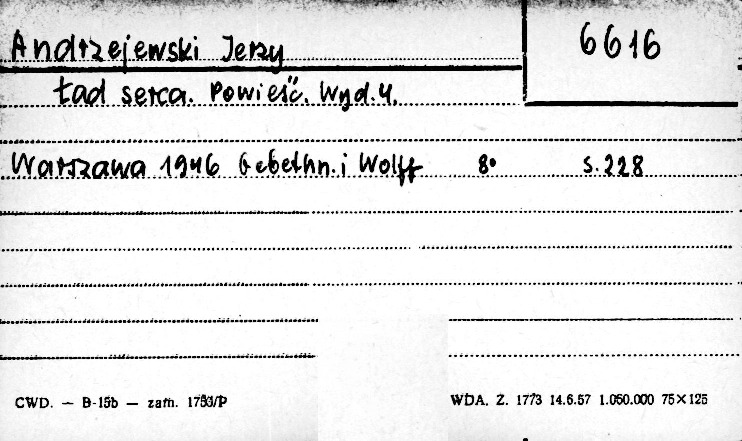 Andrzejewski Jerzy
6616
Ład serca. Powieść. Wyd. 4.
Warszawa 1946 Gebethn. i Wolff 8° s. 228
CWD. — B-15b — zam. 1753/P
WDA. Z. 1773 14.6.57 1.050.000 75×125